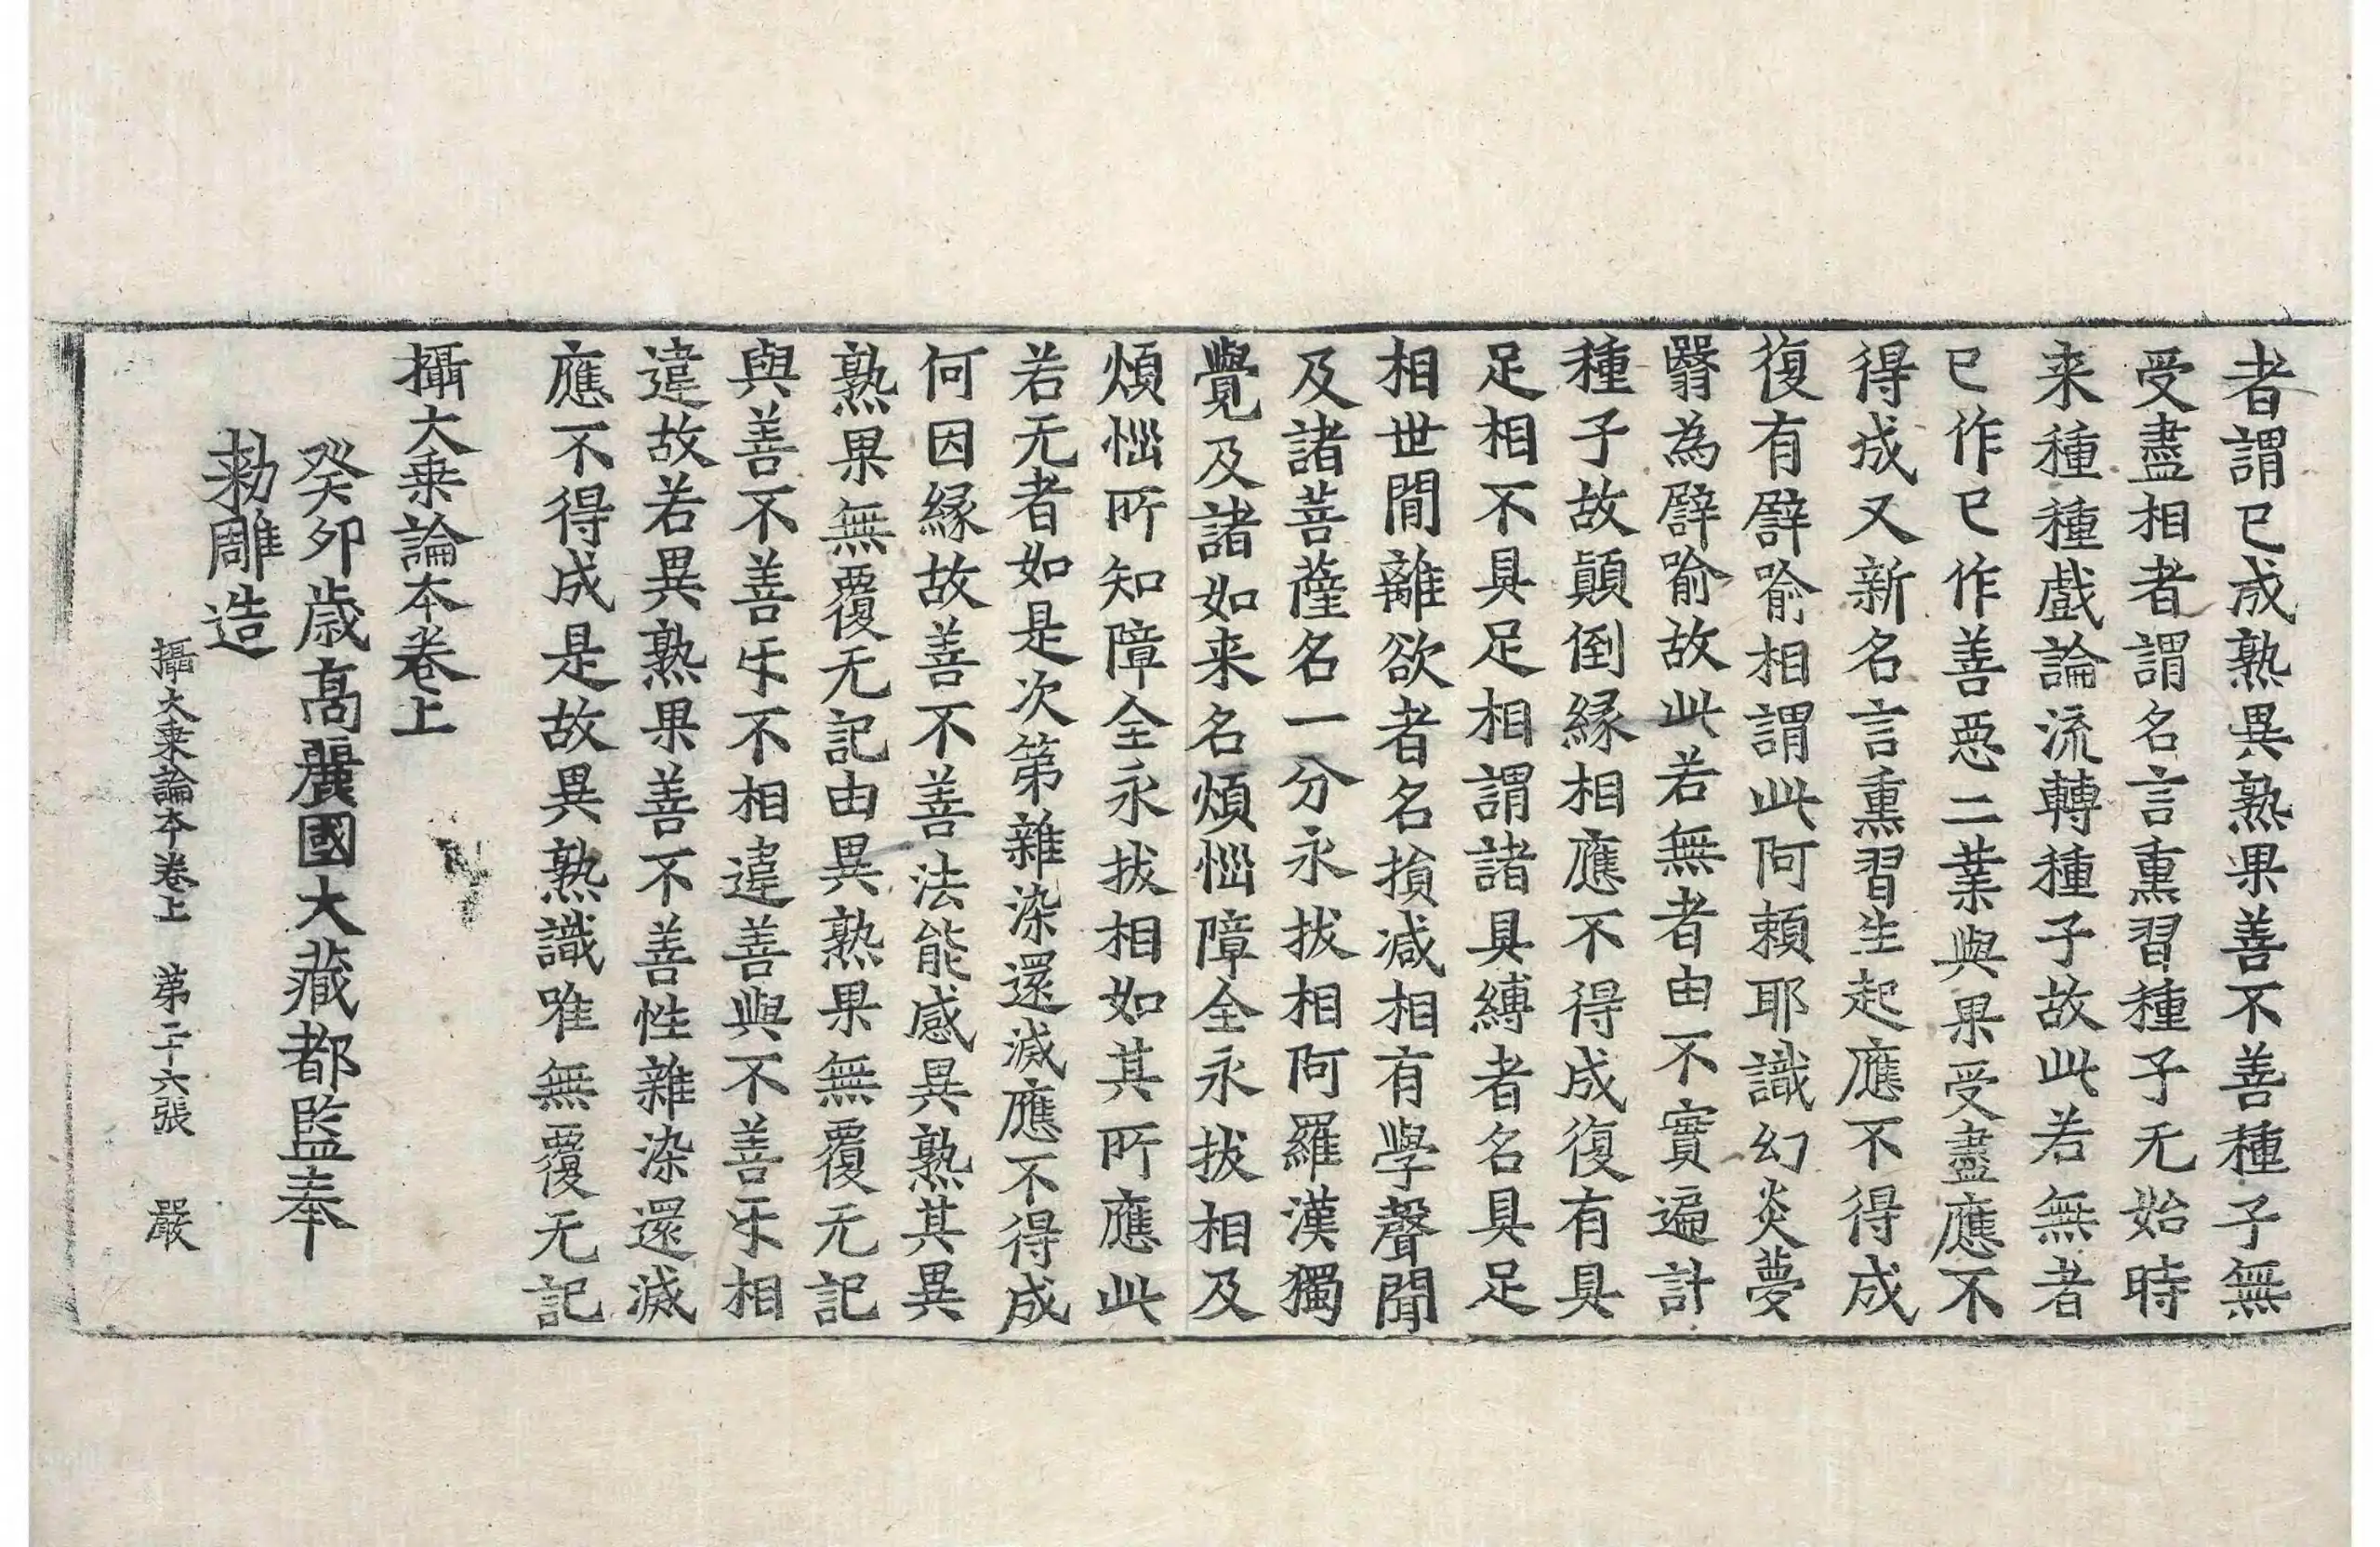 者謂已成熟異熟果善不善種子無
受盡相者謂名言熏習種子无始時
来種種戲論流轉種子故此若無者
已作已作善惡二業與果受盡應不
得成又新名言熏習生起應不得成
復有譬喻相謂此阿頼耶識幻炎夢
翳為譬喻故此若無者由不實遍計
種子故顛倒縁相應不得成復有具
足相不具足相謂諸具縛者名具足
相世間離欲者名損减相有學聲聞
及諸菩薩名一分永拔相阿羅漢獨
覺及諸如来名煩惱障全永拔相及
煩惱所知障全永拔相如其所應此
若无者如是次第雜染還滅應不得成
何因縁故善不善法能感異熟其異
熟果無覆无記由異熟果無覆无記
與善不善互不相違善與不善互相
違故若異熟果善不善性雜染還滅
應不得成是故異熟識唯無覆无記
攝大乗論本卷上
癸卯歳高麗國大藏都監奉
勑雕造
攝大乗論本卷上 第二十六張 嚴